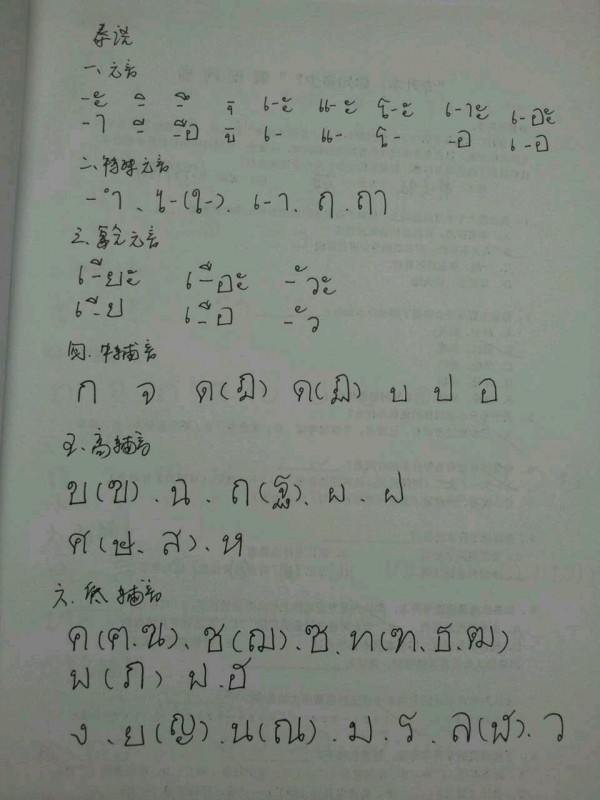 一、元音
-ะ -ิ -ึ -ุ เ-ะ แ-ะ โ-ะ เ-าะ เ-อะ
-า -ี -ือ -ู เ- แ- โ- -อ เ-อ
二、特殊元音
-ำ、ไ-(ใ-)、เ-า、ฤ.ฤา
三.复合元音
เ-ียะ เ-ือะ -ัวะ
เ-ีย เ-ือ -ัว
四.中辅音
ก จ ด(ฎ) ต(ฏ) บ ป อ
五.高辅音
ข(ฃ).ฉ.ถ(ฐ).ผ.ฝ
ศ(ษ.ส).ห
六.低辅音
ค(ฅ.ฆ)、ช(ฌ).ซ.ท(ฑ.ธ.ฒ)
พ(ภ) ฟ.ฮ
ง、ย(ญ).น(ณ).ม.ร.ล(ฬ).ว